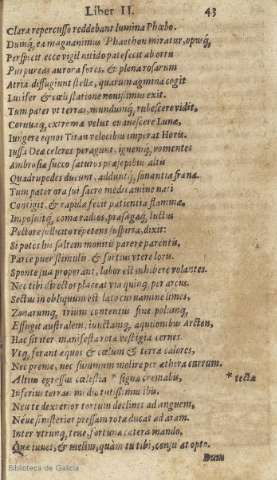 Liber II. 43
Clara repercusso reddebant lumina Phœbo.
Dumq́; ea magnanimus Phaethon miratur, opusq́;
Perspicit ecce vigil nitido patefecit ab ortu
Purpureas aurora fores, & plena rosarum
Atria diffugiunt stellæ, quarum agmina cogit
Lucifer & cœli statione nouissimus exit.
Tum pater vt terras, mundumq́; rubescere vidit,
Cornuaq́; extremæ velut euanescere Lunæ,
Iungere equos Titan velocibus imperat Horis.
Iussa Deæ celeres peragunt, ignemq́; vomentes
Ambrosiæ succo saturos præsepibus altis
Quadrupedes ducunt, adduntq́; sonantia frana.
Tum pater ora sui sacro medicamine nati
Contigit, & rapidæ fecit patientia flammæ,
Imposuitq́; comæ radios, præsagaq́; luctus
Pectore sollicito repetens suspiria, dixit:
Si potes his saltem monitis parere parentis,
Parce puer stimulis, & fortius vtere loris.
Sponte sua properant, labor est inhibere volantes.
Nec tibi directos placeat via quinq́; per arcus.
Sectus in obliquum est lato curuamine limes,
Zonarumq́; trium contentus fine polumq́;
Effugit australem, iunctamq́; aquilonibus Arcton,
Hac sit iter manifesta rota vestigia cernes.
Vtq́; ferant æquos & cœlum & terra calores,
Nec preme, nec summum molire per æthera currum.
Altius egressus cælestia * signa cremabis, * tecta
Inferius terras: medio tutissimus ibis.
Neu te dexterior tortum declinet ad anguem,
Neue sinisterior pressam rota ducat ad aram.
Inter vtrumq́; tene, fortunæ cætera mando,
Quæ iuuet, & melius, quàm tu tibi, consulat opto.
Dum
Biblioteca de Galicia